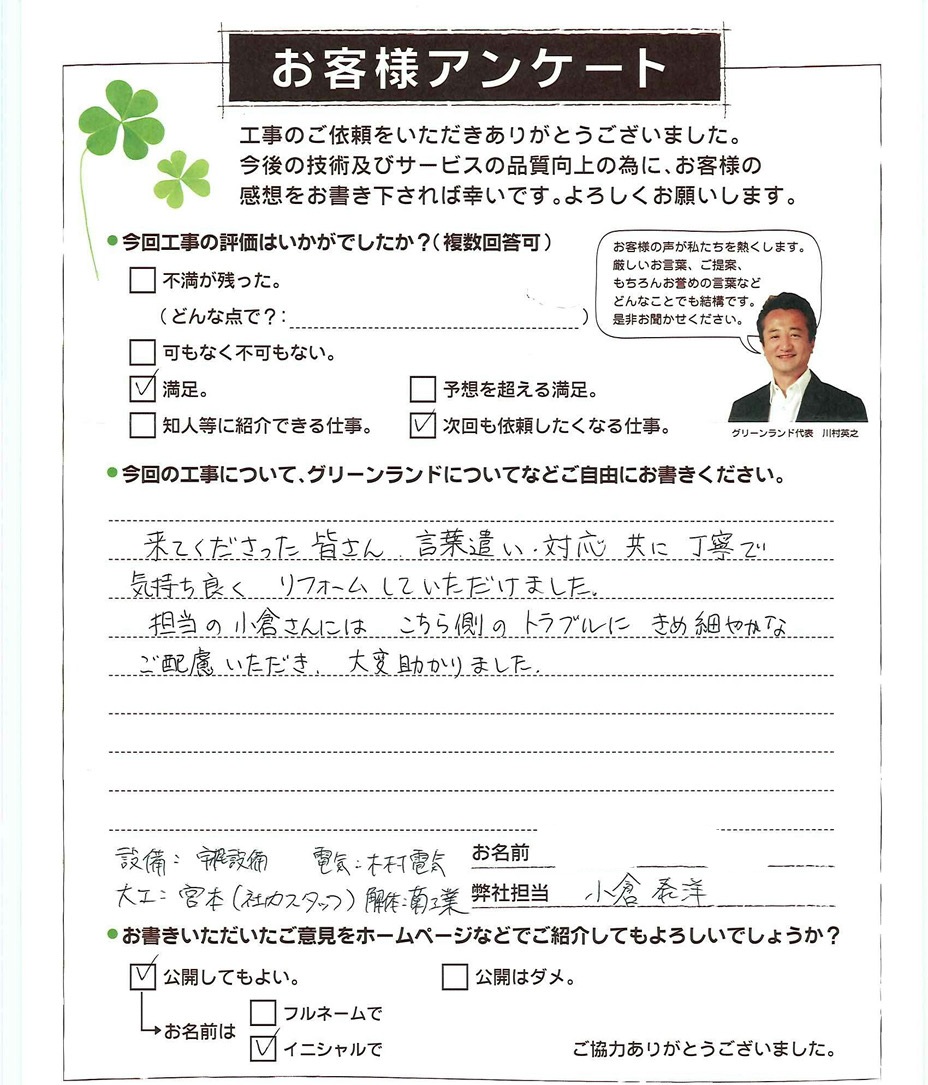 お客様アンケート
工事のご依頼をいただきありがとうございました。
今後の技術及びサービスの品質向上の為に、お客様の
感想をお書き下されば幸いです。よろしくお願いします。
今回工事の評価はいかがでしたか?(複数回答可)
不満が残った。
(どんな点で?: )
可もなく不可もない。
満足。
予想を超える満足。
知人等に紹介できる仕事。
次回も依頼したくなる仕事。
お客様の声が私たちを熱くします。
厳しいお言葉、ご提案、
もちろんお誉めの言葉など
どんなことでも結構です。
是非お聞かせください。
グリーンランド代表 川村英之
今回の工事について、グリーンランドについてなどご自由にお書きください。
来てくださった皆さん、言葉遣い・対応 共に 丁寧で
気持ち良く リフォームしていただけました。
担当の小倉さんには こちら側の トラブルに きめ細やかな
ご配慮いただき、大変助かりました。
設備: 設備 電気:木村電気
お名前
大工:宮本(社力スタッフ) 解体:菊工業
弊社担当 小倉 泰洋
お書きいただいたご意見をホームページなどでご紹介してもよろしいでしょうか?
公開してもよい。
公開はダメ。
お名前は
フルネームで
イニシャルで
ご協力ありがとうございました。